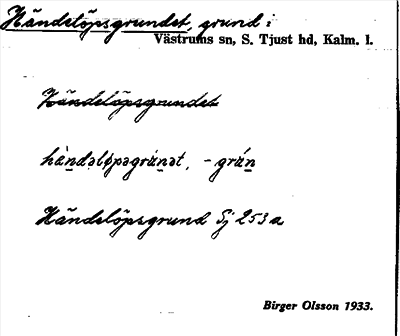 Händelöpsgrundet, grund i
Västrums sn, S. Tjust hd, Kalm. l.
Händelöpsgrundet
hàndəløpsgrúnət, -grún
Händelöpsgrund Sj 253 a
Birger Olsson 1933.